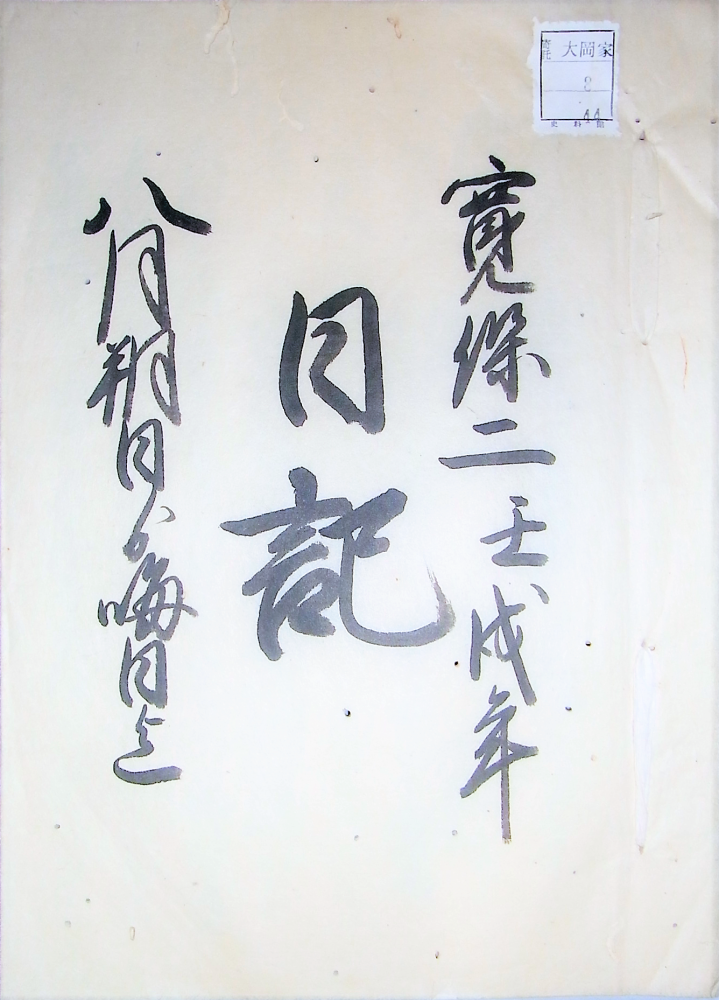 寛保二壬戌年
日記
八月朔日ゟ晦日迄
寄託 大岡家
8
44
史料館